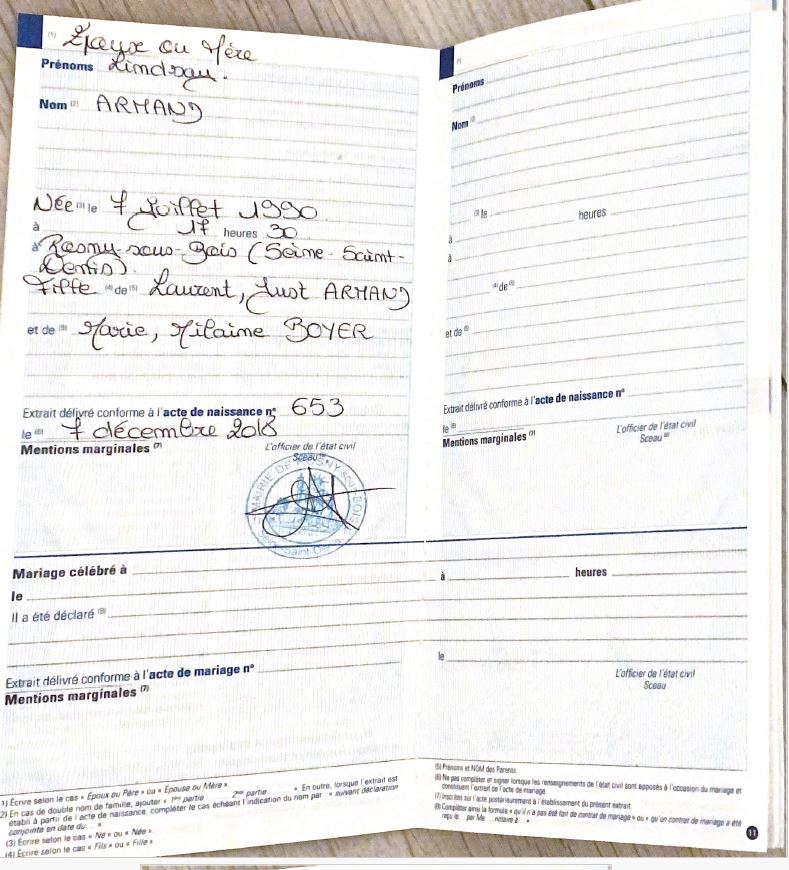 (1) Epouse ou Mère
Prénoms Lindsay.
Nom (2) ARMAND
Née (3) le 7 Juillet 1990
à 17 heures 30
à Rosny-sous-Bois (Seine-Saint-
Denis).
Fille (4) de (5) Laurent, Just ARMAND
et de (5) Marie, Hilaine BOYER
Extrait délivré conforme à l'acte de naissance n° 653
le (6) 7 décembre 2018
Mentions marginales (7)
L'officier de l'état civil
Sceau (6)
MAIRIE DE ROSNY SOUS BOIS
Saint Denis
Mariage célébré à
le
Il a été déclaré (8)
Extrait délivré conforme à l'acte de mariage n°
Mentions marginales (7)
1) Écrire selon le cas « Époux ou Père » ou « Épouse ou Mère »
2) En cas de double nom de famille, ajouter « 1ère partie 2nde partie ». En outre, lorsque l'extrait est
établi à partir de l'acte de naissance, compléter le cas échéant l'indication du nom par « suivant déclaration
conjointe en date du... »
(3) Écrire selon le cas « Né » ou « Née »
(4) Écrire selon le cas « Fils » ou « Fille »
(1)
Prénoms
Nom (2)
(3) le heures
à
à
(4) de (5)
et de (5)
Extrait délivré conforme à l'acte de naissance n°
le (6)
Mentions marginales (7)
L'officier de l'état civil
Sceau (6)
à heures
le
L'officier de l'état civil
Sceau
(5) Prénoms et NOM des Parents.
(6) Ne pas compléter et signer lorsque les renseignements de l'état civil sont apposés à l'occasion du mariage et
constituent l'extrait de l'acte de mariage.
(7) Inscrites sur l'acte postérieurement à l'établissement du présent extrait.
(8) Compléter ainsi la formule « qu'il n'a pas été fait de contrat de mariage » ou « qu'un contrat de mariage a été
reçu le... par Me... notaire à... »
11